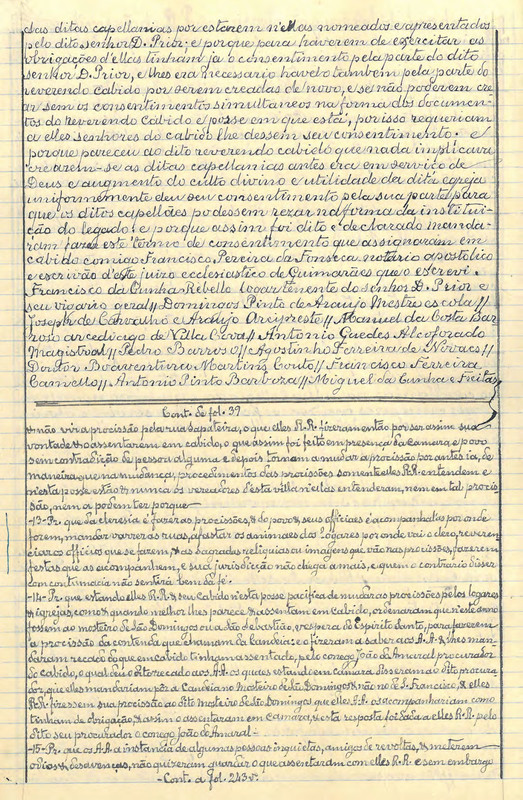 das ditas capellanias por estarem n'ellas nomeados e apresentados
pelo dito senhor D. Prior, e porque para haverem de exercitar as
obrigações d'ellas tinham ja o consentimento pela parte do dito
senhor D. Prior, e lhes era necessario havel-o tambem pela parte do
reverendo cabido por serem creadas de novo, e se não poderem cre
ar sem os consentimentos simultaneos na forma dos documen-
tos do reverendo cabido e posse em que está, por isso requeriam
a elles senhores do cabido lhe dessem seu consentimento. e
porque pareceu ao dito reverendo cabido que nada implicava
crearem-se as ditas capellanias antes era em serviço de
Deus e augmento do culto divino e utilidade da dita egreja
uniformemente deu seu consentimento pela sua parte para
que os ditos capellães podessem rezar na forma da institui-
ção do legado. e porque assim foi dito e declarado manda-
ram fazer este termo de consentimento que assignaram em
cabido comigo Francisco Pereira da Fonseca notario apostolico
e escrivão d'este juizo ecclesiastico de Guimarães que o escrevi.
Francisco da Cunha Rebello logartenente do senhor D. Prior e
seu vigario geral // Domingos Pinto de Araujo Mestre escola //
Joseph de Carvalho e Araujo Arcipreste // Manuel da Costa Bar
roso arcediago de Villa Cova // Antonio Guedes Alcoforado
Magistral // Pedro Barros // Agostinho Ferreira de Novaes //
Doutor Boaventura Martins Couto // Francisco Ferreira
Camello // Antonio Pinto Barboza // Miguel da Cunha e Freitas
Cont. de fol. 39
& não vir a procissão pela rua Sapateira, o que elles R.R. fizeram então por ser assim sua
vontade & o assentarem em cabido, o que assim foi feito em presença da Camara, e povo
sem contradição de pessoa alguma e depois tornam a mudar a procissão por antes ia, de
maneira que na mudança, procedimentos das procissões somente elles R.R. entendem e
n'esta posse estão & nunca os vereadores d'esta villa n'ellas entenderam, nem em tal procis
são, nem o podem ter porque
-13- Pr. que da cleresia é fazer as procissões, & do povo & seus officiaes é acompanhal-as por onde
forem, mandar varrer as ruas, afastar os animaes dos logares por onde vai o clero, reveren
ciar os officios que se fazem, & as sagradas reliquias ou imagens que vão nas procissões, fazerem
festas que as acompanhem, e sua jurisdicção não chega a mais, e quem o contrario disser
com contumacia não sentirá bem da fé.
-14- Pr. que estando elles R.R. & seu cabido n'esta posse pacifica de mudar as procissões pelos logares
& igrejas, como & quando melhor lhes parece & assentam em cabido, ordenaram que n'este anno
fossem ao mosteiro de São Domingos ou a São Sebastião, vespera do Espirito Santo, para fazerem
a procissão da contenda que chamam da Candeia: e o fizeram a saber aos A.A. & lhes man
daram recado do que em cabido tinham assentado, pelo conego João do Amaral procurador
do cabido, o qual deu o dito recado aos A.A. os quaes estando em camara disseram ao dito procura
dor, que elles mandariam pôr a Candeia no Mosteiro de São Domingos & não no de S. Francisco, & elles
R.R. fizessem sua procissão ao dito Mosteiro de São Domingos que elles A.A. os acompanhariam como
tinham de obrigação, & assim o assentaram em Camara, & esta resposta foi dada a elles R.R. pelo
dito seu procurador o conego João do Amaral -
-15- Pr. que os A.A. a instancia de algumas pessoas inquietas, amigos de revoltas, & metterem
odios & desavenças, não quizeram guardar o que assentaram com elles R.R. e sem embargo
-Cont. a fol. 243v.-